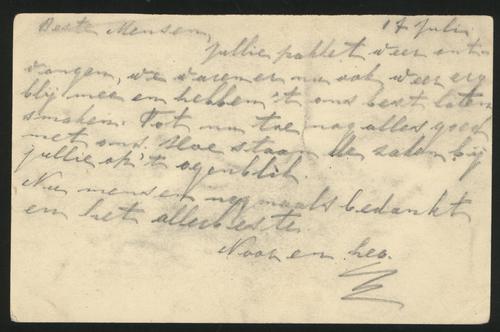 Beste Mensen, 17 juli
Jullie pakket weer ont-
vangen, we waren er nu ook weer erg
blij mee en hebben 't ons best laten
smaken. Tot nu toe nog alles goed
met ons. Hoe staan de zaken bij
jullie op 't ogenblik.
Nu mensen nogmaals bedankt
en het allerbeste.
Noor en Leo.